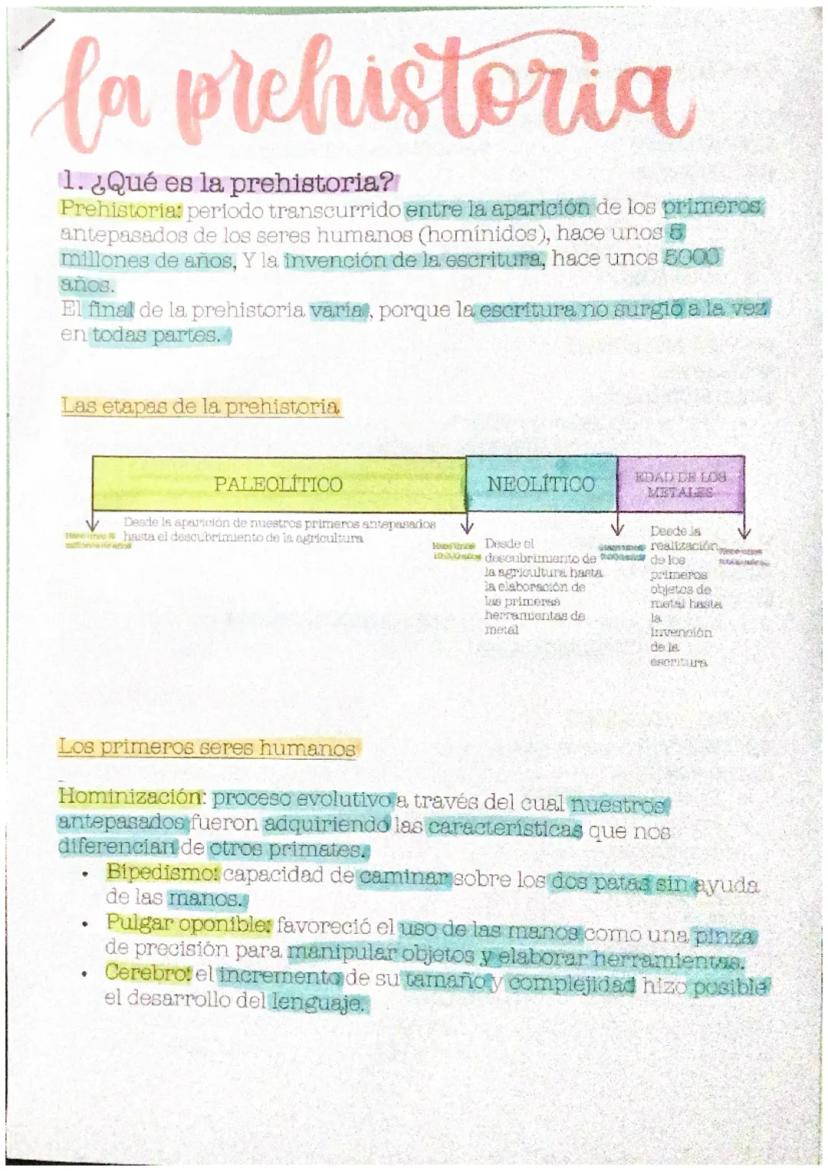 la prehistoria
1. ¿Qué es la prehistoria?
Prehistoria: periodo transcurrido entre la aparición de los primeros
antepasados de los seres humanos (homínidos), hace unos 5
millones de años, Y la invención de la escritura, hace unos 5000
años.
El final de la prehistoria varía, porque la escritura no surgió a la vez
en todas partes.
Las etapas de la prehistoria
PALEOLÍTICO
NEOLÍTICO
EDAD DE LOS
METALES
Desde la aparición de nuestros primeros antepasados
hasta el descubrimiento de la agricultura
Desde el
descubrimiento de
la agricultura hasta
la elaboración de
las primeras
herramientas de
metal
Desde la
realización
de los
primeros
objetos de
metal hasta
la
invención
de la
escritura
Los primeros seres humanos
Hominización: proceso evolutivo a través del cual nuestros
antepasados fueron adquiriendo las características que nos
diferencian de otros primates.
• Bipedismo: capacidad de caminar sobre los dos patas sin ayuda
de las manos.
• Pulgar oponible: favoreció el uso de las manos como una pinza
de precisión para manipular objetos y elaborar herramientas.
• Cerebro: el incremento de su tamaño y complejidad hizo posible
el desarrollo del lenguaje.